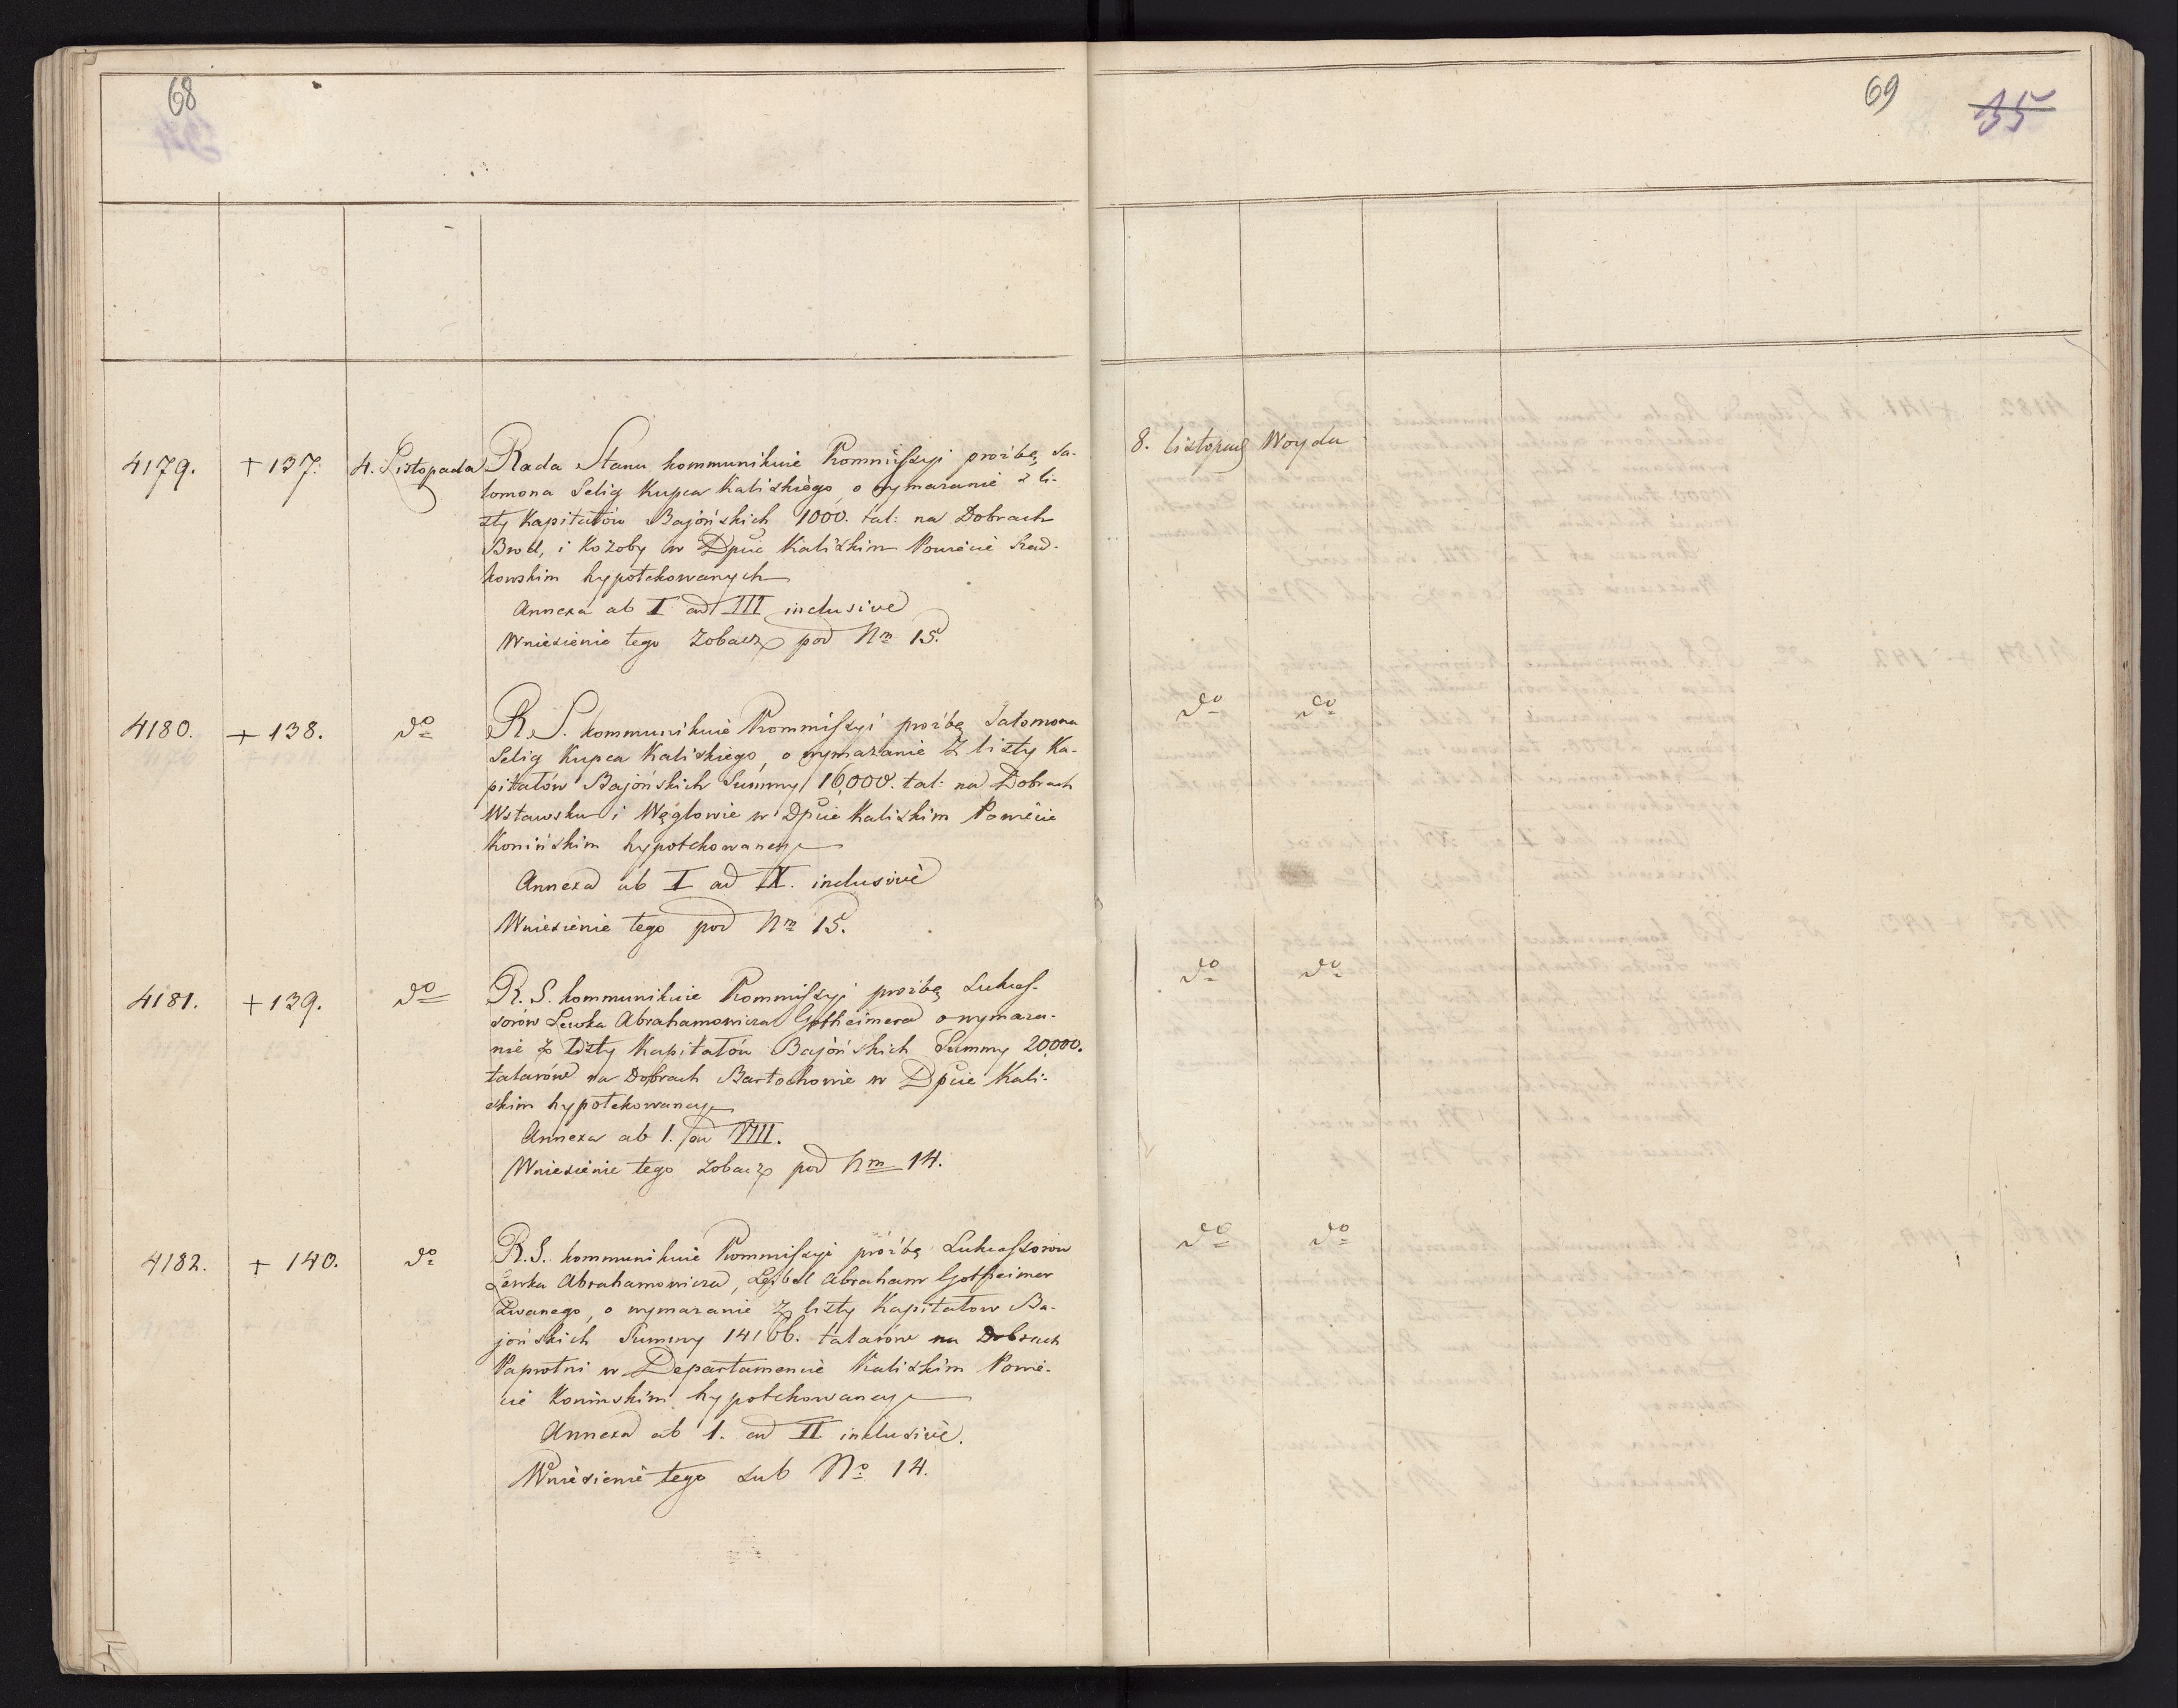 68
69
35
4179. + 137. 4. Listopada Rada Stanu kommunikuie Kommissyi proźbę Sa-
lomona Selig Kupca Kaliskiego, o wymazanie z li-
sty Kapitałów Bajońskich 1000. tal: na Dobrach
i Kożoby w Dpcie Kaliskim Powiecie Szad-
kowskim hypotekowanych
Annexa ab I ad III inclusive
Wniesienie tego Zobacz pod Nm 15.
8. listopad Woyda
4180. + 138. do R. S. kommunikuie Kommissyi proźbę Salomona
Selig Kupca Kaliskiego, o wymazanie Z listy Ka-
pitałów Bajońskich Summy 16,000. tal: na Dobrach
i Węglowie w Dpcie Kaliskim Powiecie
Konińskim hypotekowaney
Annexa ab I ad IX. inclusive
Wniesienie tego pod Nm 15.
do do
4181. + 139. do R. S. kommunikuie Kommissyi proźbę Sukces-
sorów Lewka Abrahamowicza Gotheimera o wymaza-
nie z Listy Kapitałów Bajońskich Summy 20,000.
talarów na Dobrach Bartochowie w Dpcie Kali-
skim hypotekowaney
Annexa ab 1. ad VIII.
Wniesienie tego zobacz pod Nm 14.
do do
4182. + 140. do R. S. kommunikuie Kommissyi proźbę Sukcessorow
Lewka Abrahamowicza, Leybel Abraham Gotheimer
Zwanego, o wymazanie Z listy Kapitałow Ba-
jońskich Summy talarów na Dobrach
Paprotni w Departamencie Kaliskim Powie-
cie Konińskim hypotekowaney
Annexa ab 1. ad II inclusive.
Wniesienie tego sub No 14.
do do